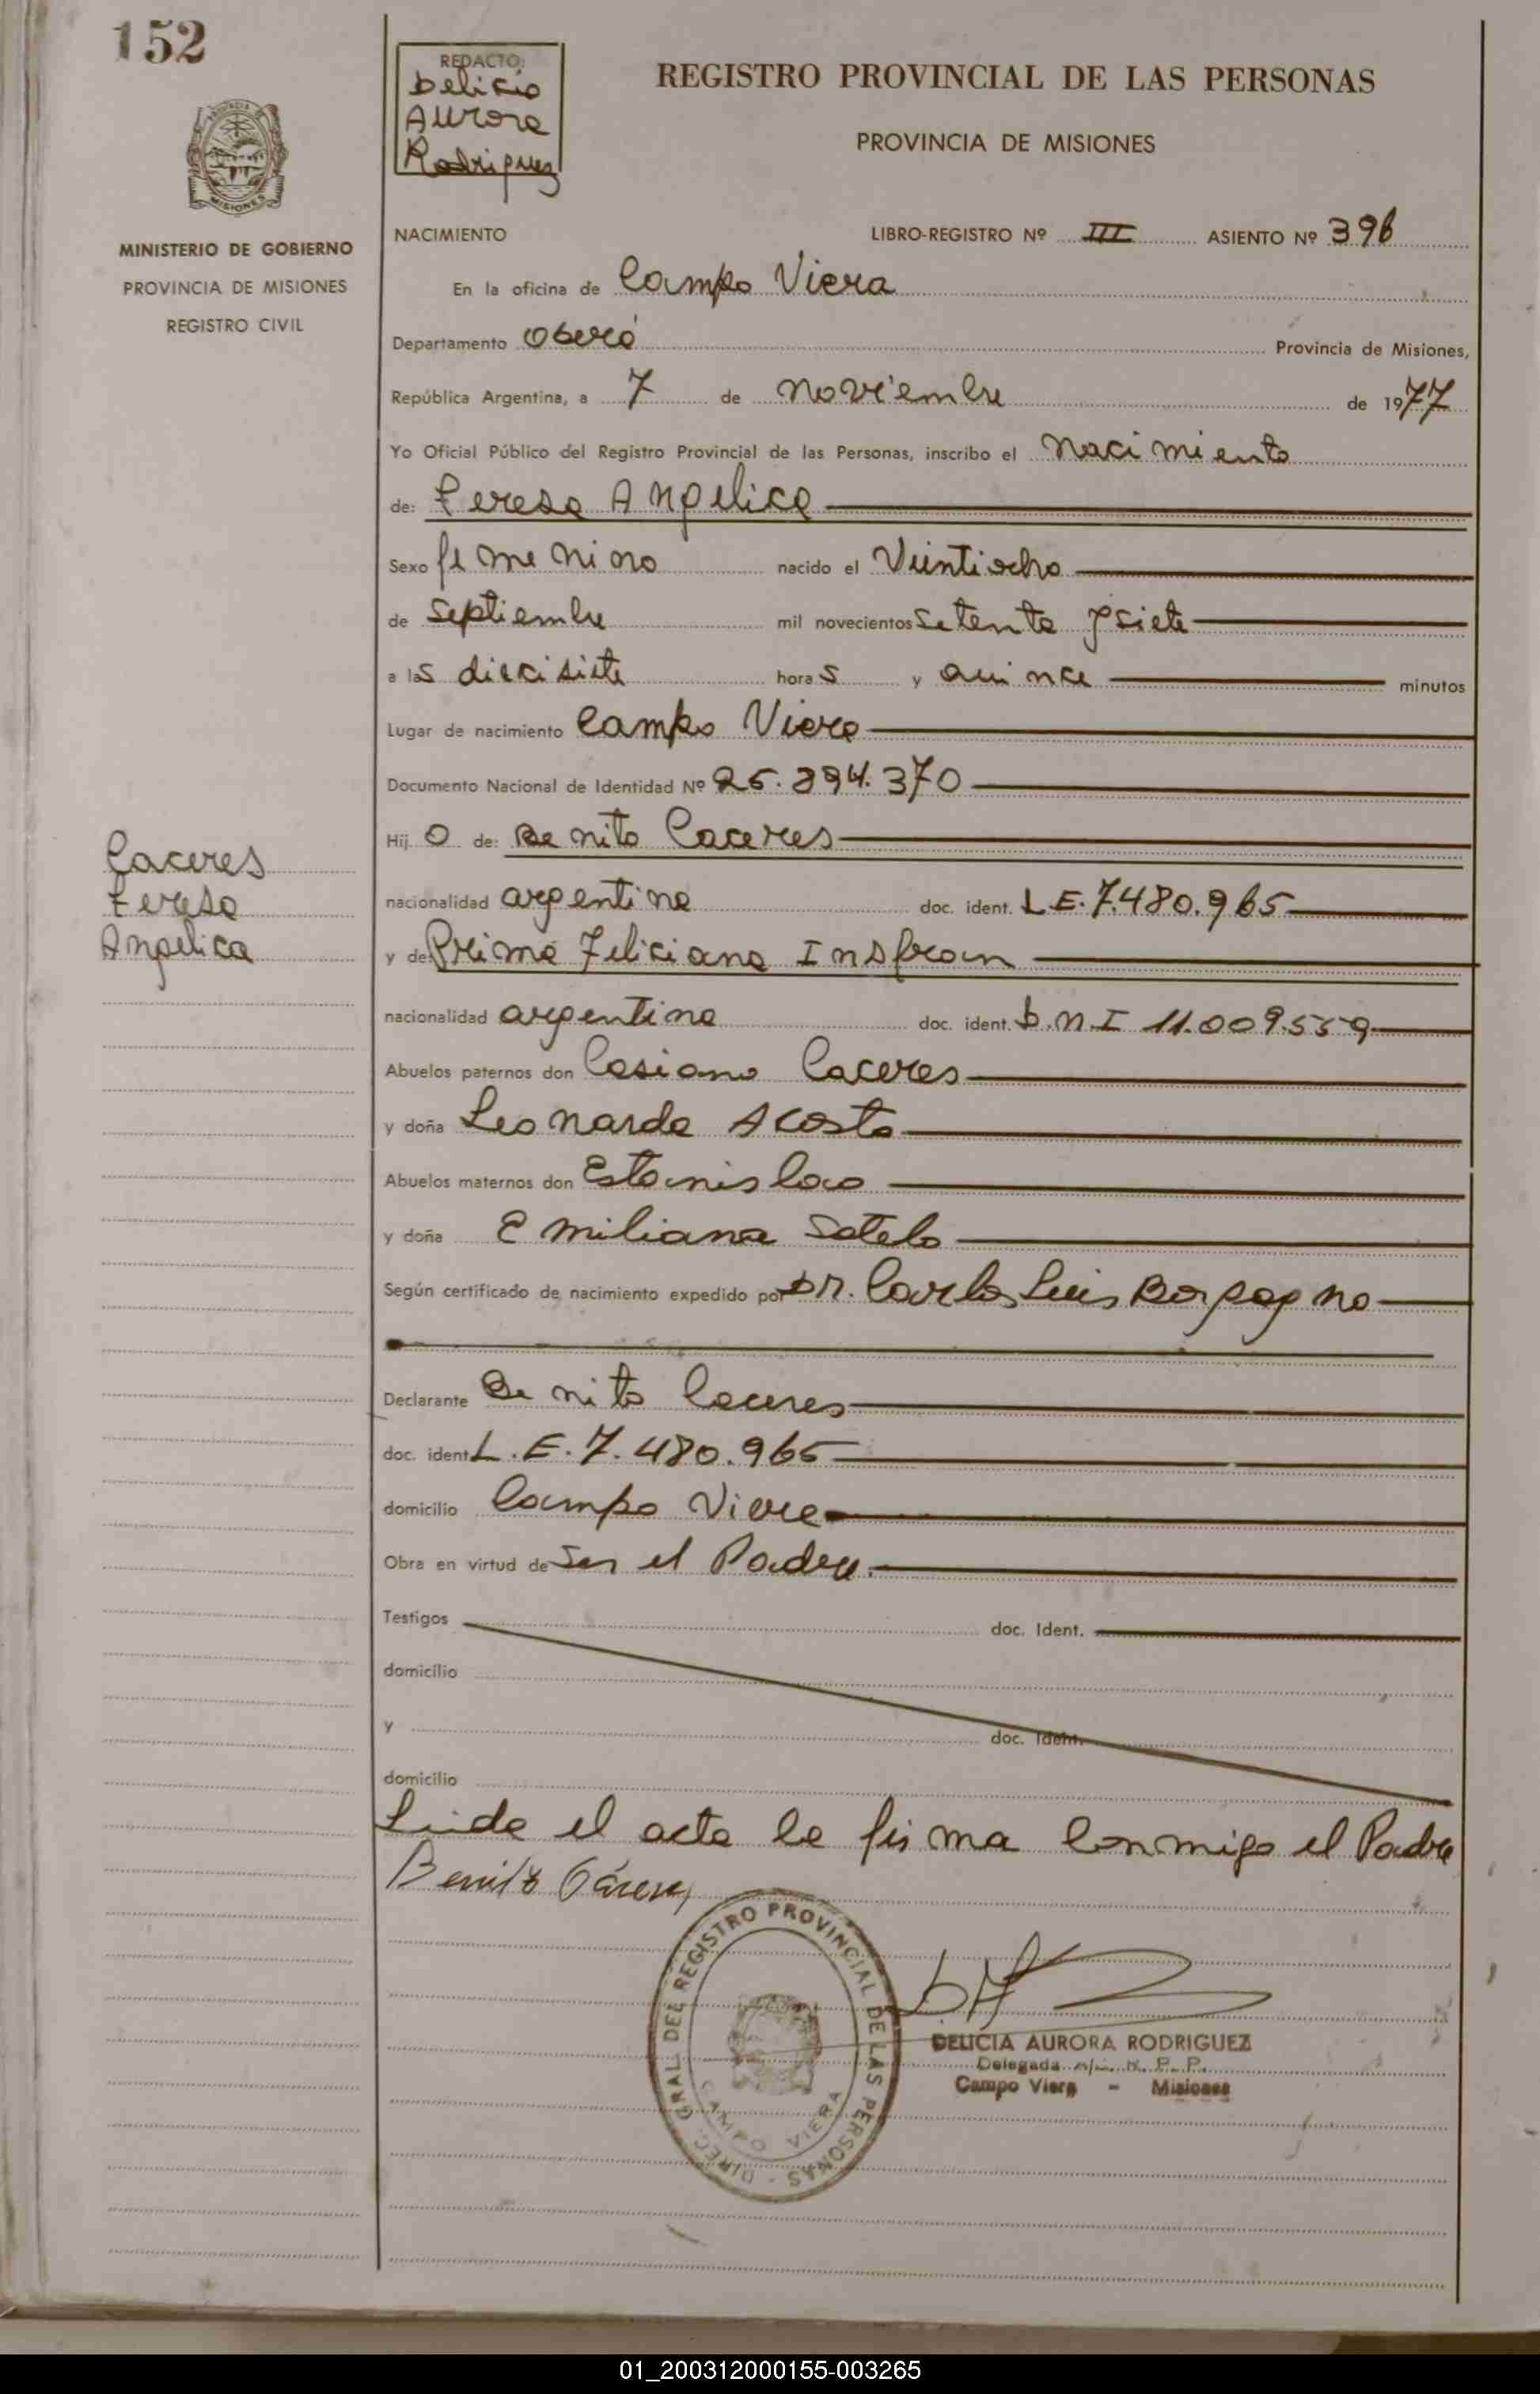 152
REDACTO:
Delicia
Aurora
Rodriguez
REGISTRO PROVINCIAL DE LAS PERSONAS
PROVINCIA DE MISIONES
MISIONES
MINISTERIO DE GOBIERNO
PROVINCIA DE MISIONES
REGISTRO CIVIL
NACIMIENTO LIBRO-REGISTRO Nº III ASIENTO Nº 396
En la oficina de Campo Viera
Departamento Oberá Provincia de Misiones,
República Argentina, a 7 de noviembre de 1977
Yo Oficial Público del Registro Provincial de las Personas, inscribo el Nacimiento
de: Teresa Angelica
Sexo femenino nacido el Veintiocho
de Septiembre mil novecientos Setenta y siete
a las diecisiete horas y quince minutos
Lugar de nacimiento Campo Viera
Documento Nacional de Identidad Nº 25.894.370
Hijo de: Benito Caceres
Caceres
Teresa
Angelica
nacionalidad argentina doc. ident. L.E. 7.480.965
y de Prima Feliciana Insfran
nacionalidad argentina doc. ident. D.N.I 11.009.559
Abuelos paternos don Casiano Caceres
y doña Leonarda Acosta
Abuelos maternos don Estanislao
y doña Emiliana Sotelo
Según certificado de nacimiento expedido por Dr. Carlos Luis Borgogno
Declarante Benito Caceres
doc. ident. L.E. 7.480.965
domicilio Campo Viera
Obra en virtud de Ser el Padre.
Testigos doc. Ident.
domicilio
y doc. Ident.
domicilio
Leida el acta la firma conmigo el Padre
Benito Cáceres
DIREC. GRAL. DEL REGISTRO PROVINCIAL DE LAS PERSONAS
CAMPO VIERA
DELICIA AURORA RODRIGUEZ
Delegada R. P. P.
Campo Viera - Misiones
01_200312000155-003265